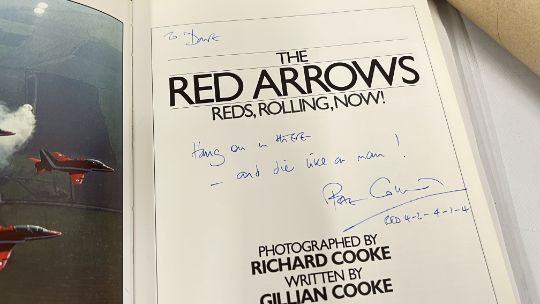 To: Dave
THE
RED ARROWS
REDS, ROLLING, NOW!
Hang on in there
— and die like a man !
RED 4-2-4-2-4
PHOTOGRAPHED BY
RICHARD COOKE
WRITTEN BY
GILLIAN COOKE